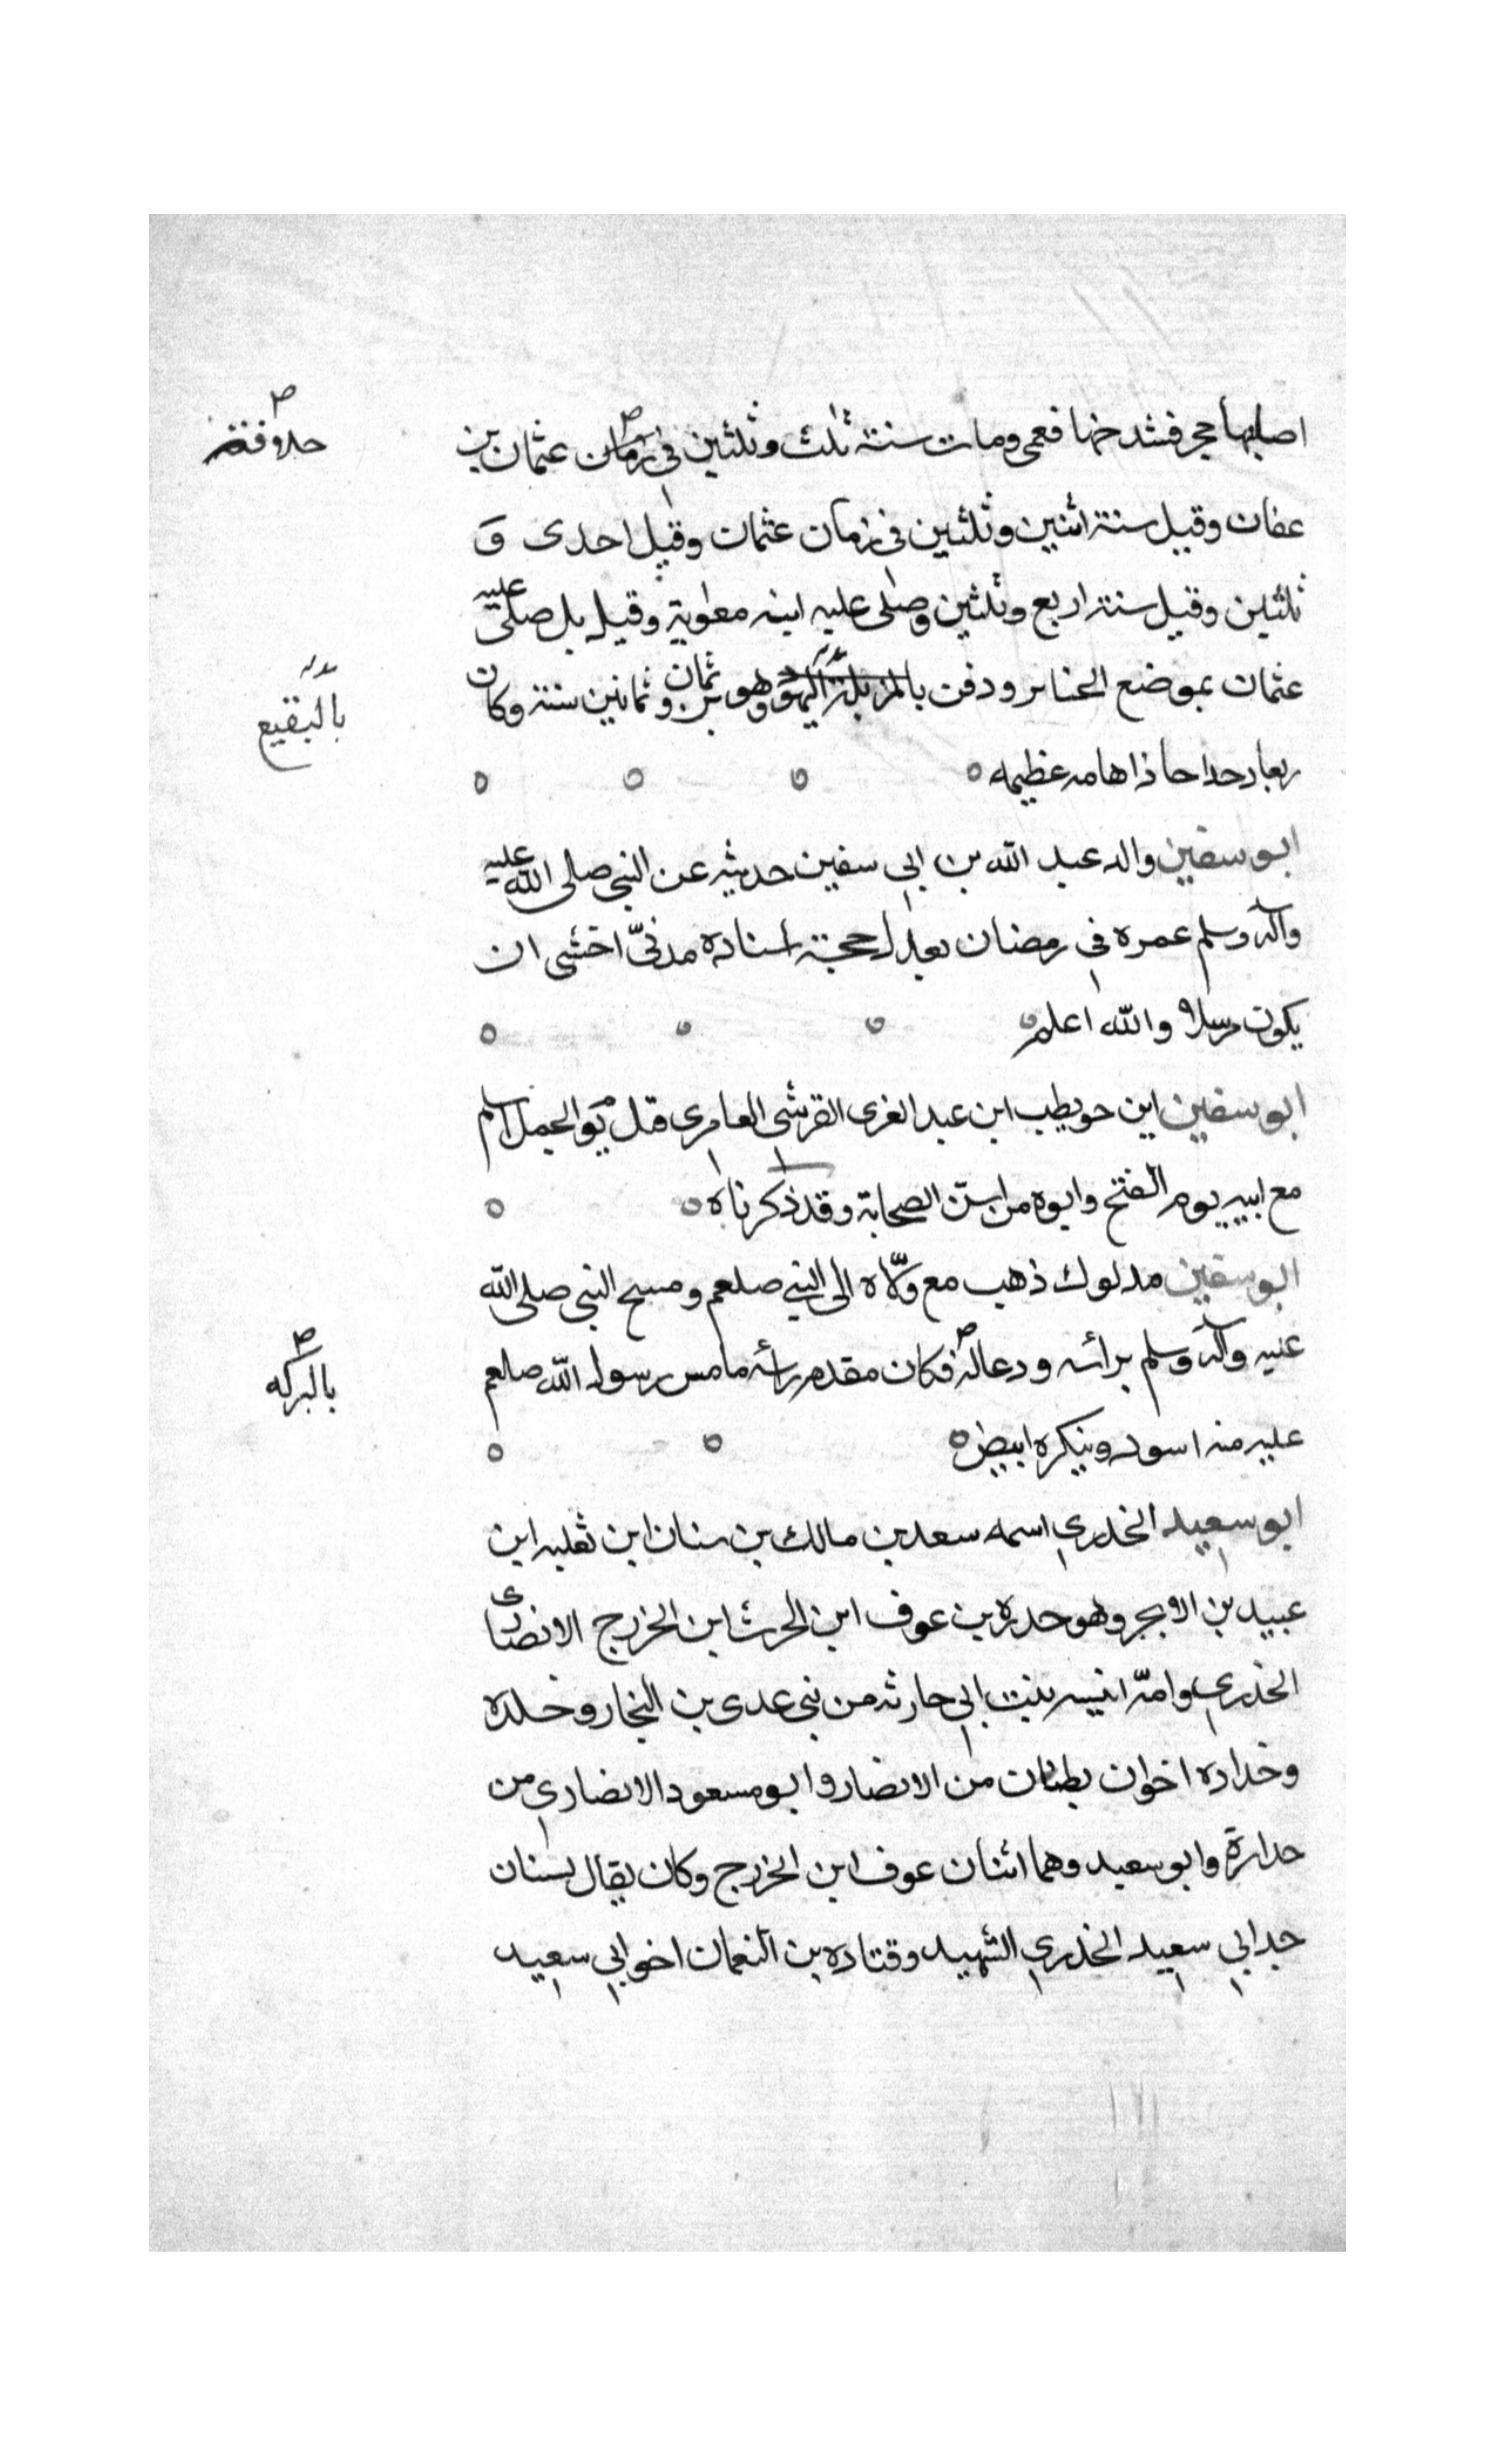 اصابها حجر فشدخها فعمى ومات سنة ثلث وثلثين فى زمان عثمان بن
خلافة
عفان وقيل سنة اثنين وثلثين فى زمان عثمان وقيل احدى و
ثلثين وقيل سنة اربع وثلثين وصلى عليه ابنه معوية وقيل بل صلى عليه
عثمان بموضع الجنائز ودفن وهو بن ثمان وثمانين سنة وكان
بالبقيع
ربعا دحداحا ذا هامه عظيمه
ابو سفين والد عبد الله بن ابى سفين حديثه عن النبى صلى الله عليه
وآله وسلم عمره فى رمضان تعدل حجة اسناده مدنىّ اخشى ان
يكون مرسلا والله اعلم
ابو سفين ابن حويطب ابن عبد العزى القرشى العامرى قتل يوم الجمل اسلم
مع ابيه يوم الفتح وابوه من اسن الصحابة وقد ذكرناه
ابو سفين مدلوك ذهب مع مولاه الى النبى صلعم ومسح النبى صلى الله
عليه وآله وسلم برأسه ودعا له فكان مقدم رأسه ما مس رسول الله صلعم
بالبركه
عليه منه اسود وينكره ابيض
ابو سعيد الخدرى اسمه سعد بن مالك بن سنان ابن ثعلبه ابن
عبيد بن الابجر وهو خدره بن عوف ابن الحرث ابن الخزرج الانصارى
الخدرى وامّه انيسه بنت ابى حارثه من بنى عدى بن النجار وخدره
وخداره اخوان بطنان من الانصار وابو مسعود الانصارى من
خدارة وابو سعيد وهما اثنان عوف ابن الخزرج وكان يقال لسنان
جد ابى سعيد الخدرى الشهيد وقتاده بن النعمان اخو ابى سعيد